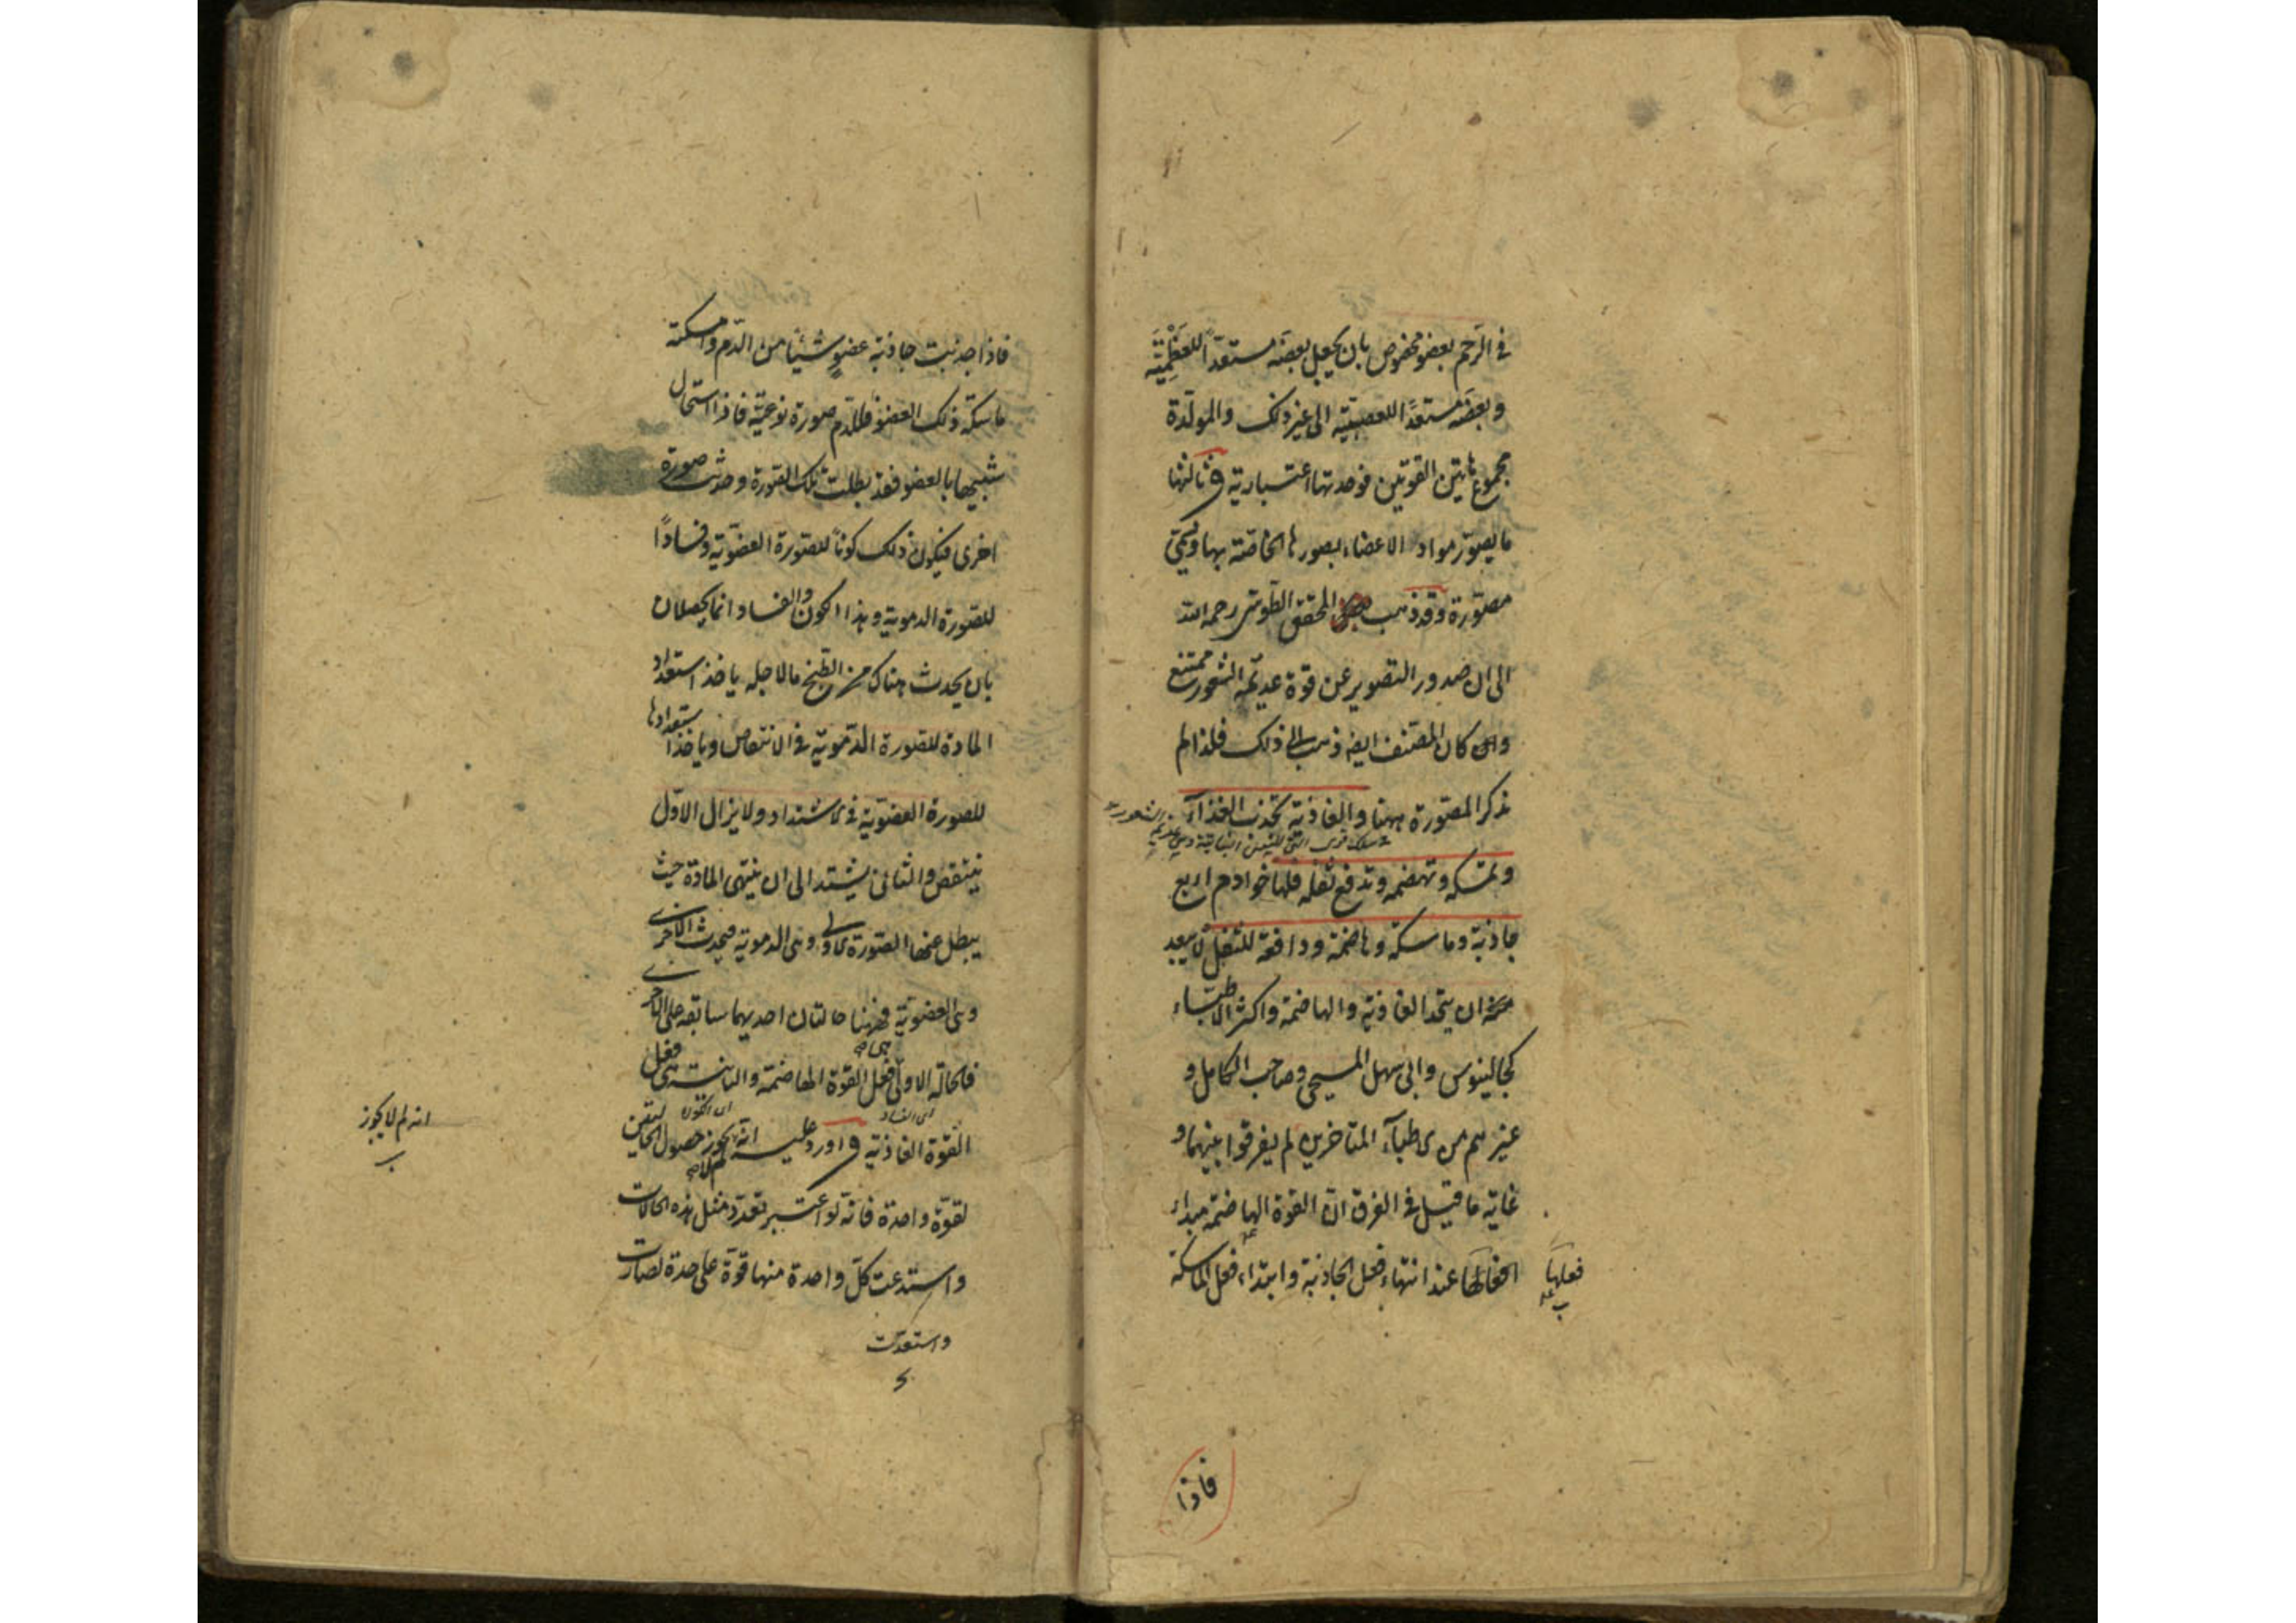 في الرحم بعضو مخصوص بان يجعل بعضَه مستعداً للعَظْمِيَّة
وبعضَه مستعدًّا للعصبيّة الى غير ذلك والمولّدة
مجموع هاتين القوتين فوحدتها اعتبارية وثالثها
ما يصوّر مواد الاعضاء بصورها الخاصّة بها ويسمّى
مصوّرة وقد ذهب المحقق الطوسى رحمه الله
الى ان صدور التصوير عن قوة عديمة الشعور ممتنع
وان كان المصنف ايضا ذهب الى ذلك فلذا لم
يذكر المصوّرة ههنا والغاذية تجذب الغذآء
وتمسكه وتهضمه وتدفع ثفله فلها خوادم اربع
جاذبة وماسكة وهاضمة ودافعة للثفل لا يبعد
ان يتحد الغاذية والهاضمة واكثر الاطبّاء
كجالينوس وابى سهل المسيحى وصاحب الكامل و
غيرهم من الاطبآء المتاخرين لم يفرقوا بينهما و
غاية ما قيل في الفرق انّ القوة الهاضمة مبداء
عند انتهاء فعل الجاذبة وابتداء فعل الماسكة
فعلها
فاذا
فاذا جذبت جاذبة عضوٍ شيئا من الدّم وامسكته
ماسكة ذلك العضو فللدّم صورة نوعيّة فاذا استحال
شبيها بالعضو فقد بطلت تلك الصورة وحدثت صورة
اخرى فيكون ذلك كونًا للصّورة العضويّة وفسادًا
للصّورة الدموية وهذا الكون والفساد انما يحصلان
بان يحدث هناك من الطّبخ ما لاجله ياخذ استعداد
المادة للصّورة الدّمويّة في الانتقاص وياخذ استعدادها
للصورة العضويّة في الاشتداد ولا يزال الاوّل
ينتقص والثانى يشتد الى ان ينتهى المادّة حيث
يبطل عنها الصّورة الاولى وهى الدموية فيحدث الاخرى
وهى العضويّة فههنا حالتان احديهما سابقة على الاخرى
فالحالة الاولى فعل القوة الهاضمة والثانية هى فعل
اى الفساد
اى الكون
القوّة الغاذية واورد عليه انّه لم لا يجوز حصول الحالتين
انه لم لا يجوز
لقوّة واحدة فانّه لو اعتبر تعدّد مثل هذه الحالات
واستدعت كلّ واحدة منها قوّة على حدة لصارت
واستعدّت